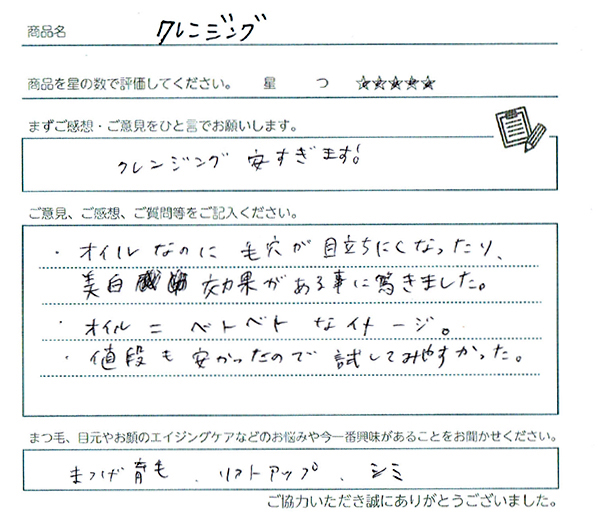 商品名 クレンジング
商品を星の数で評価してください。 星 つ ☆☆☆☆☆
まずご感想・ご意見をひと言でお願いします。
クレンジング 安すぎます!
ご意見、ご感想、ご質問等をご記入ください。
・オイルなのに 毛穴が目立ちにくなったり、
美白 効果がある事に驚きました。
・オイル = ベトベトなイメージ。
・値段も安かったので試してみやすかった。
まつ毛、目元やお顔のエイジングケアなどのお悩みや今一番興味があることをお聞かせください。
まつげ育毛、リフトアップ、シミ
ご協力いただき誠にありがとうございました。